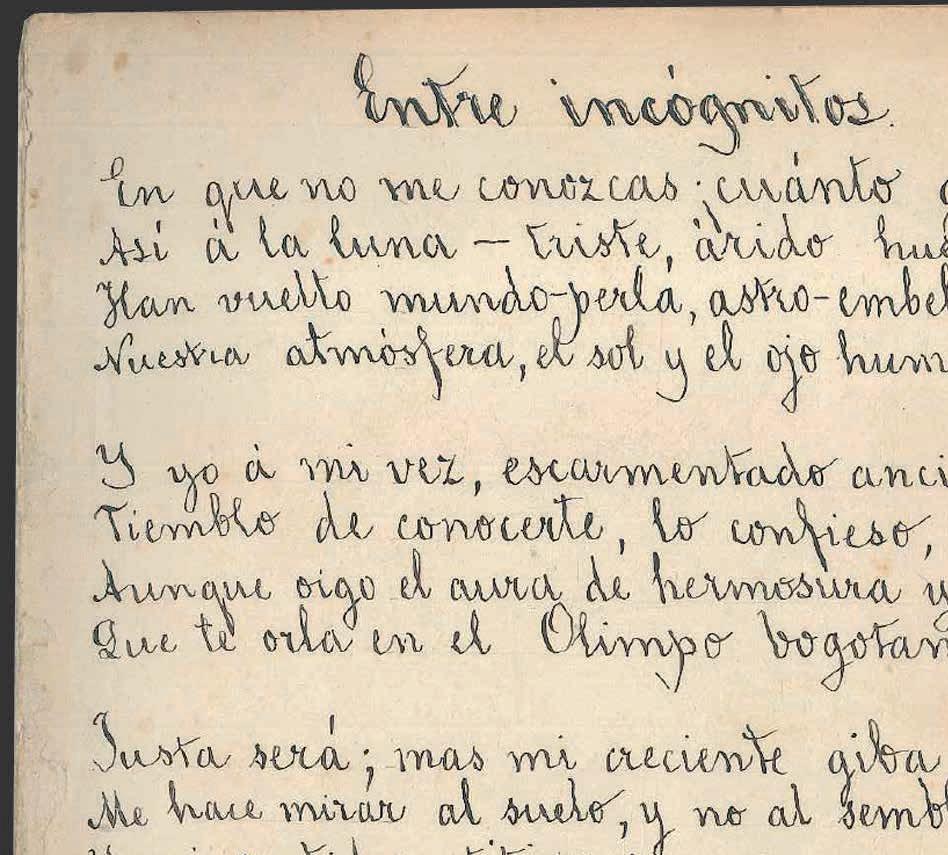 Entre incógnitos.
En que no me conozcas ¡cuánto
Así á la luna – triste, árido hue
Han vuelto mundo-perla, astro-embel
Nuestra atmósfera, el sol y el ojo hum
Y yo á mi vez, escarmentado anci
Tiemblo de conocerte, lo confieso,
Aunque oigo el aura de hermosura y
Que te orla en el Olimpo bogotan
Justa será; mas mi creciente giba
Me hace mirar al suelo, y no al sembl